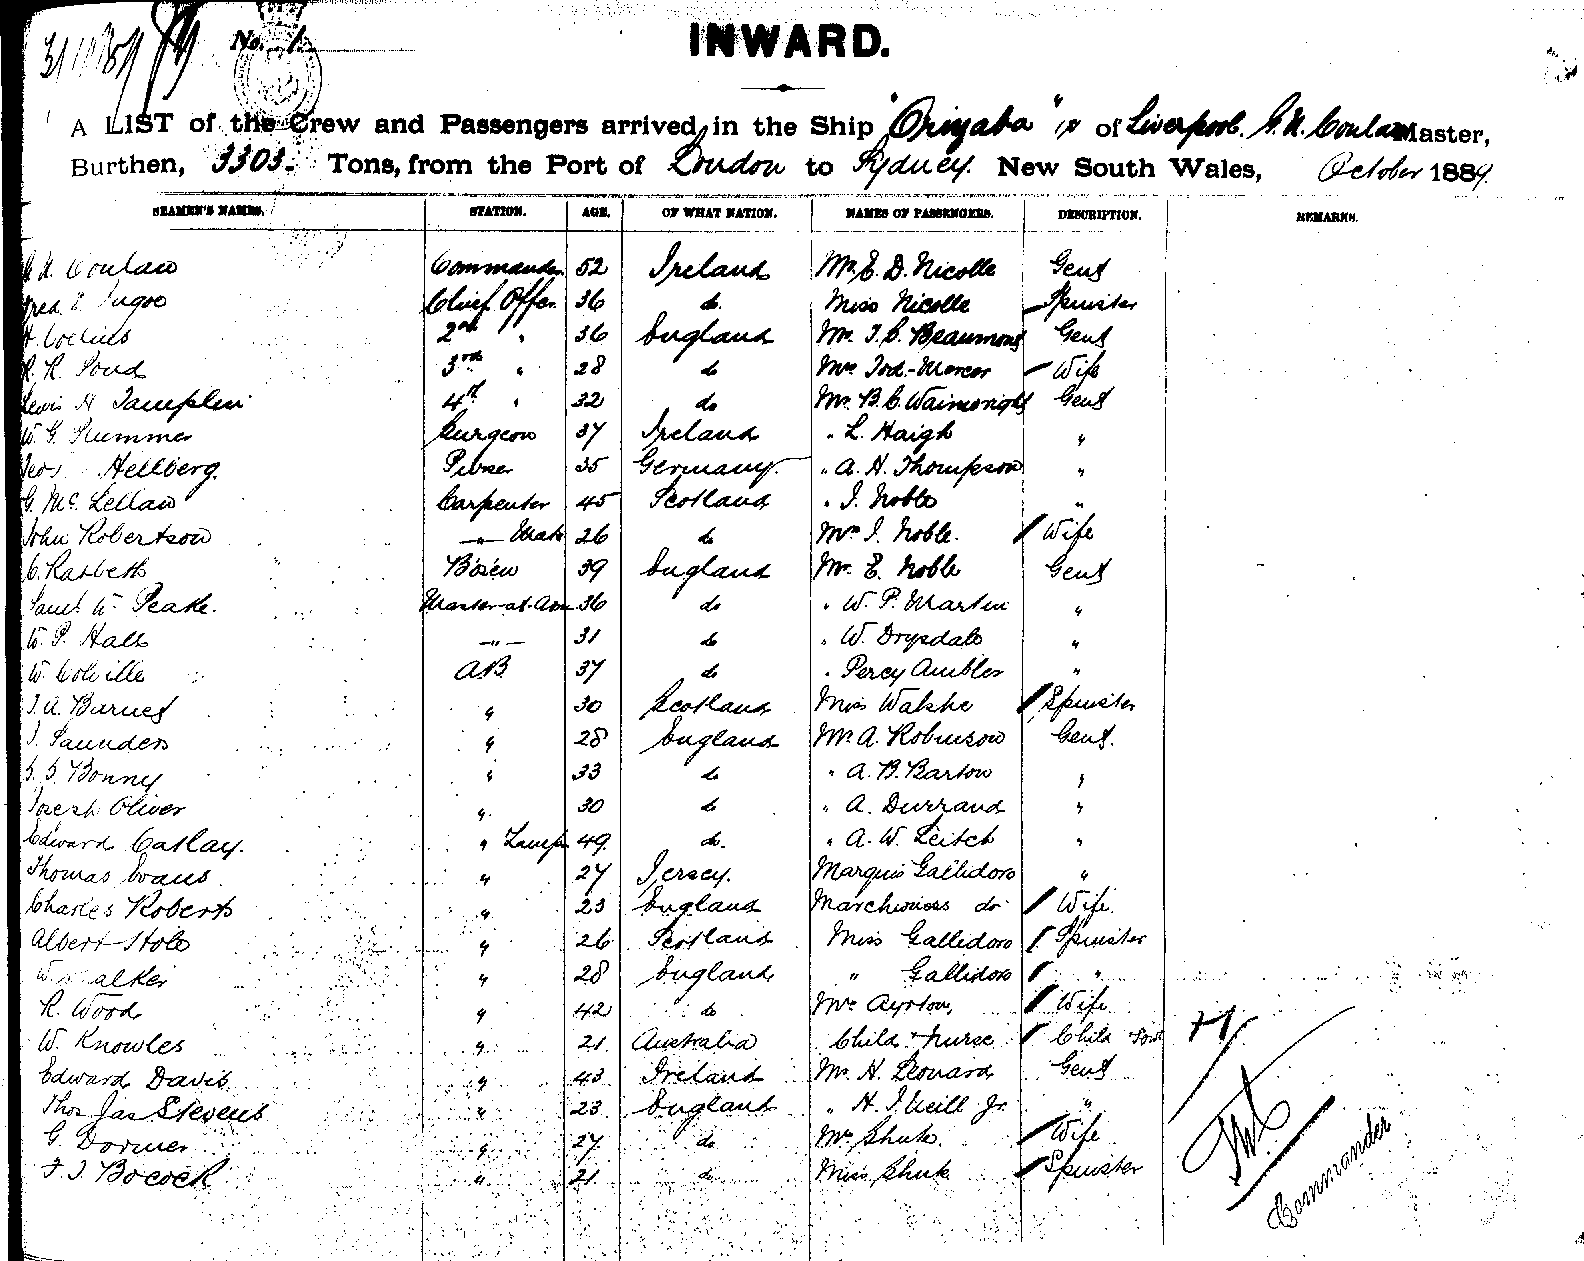 31/10/89 No. 1.
INWARD.
A LIST of the Crew and Passengers arrived in the Ship "Orizaba" of Liverpool. Master,
Burthen, 3303. Tons, from the Port of London to Sydney. New South Wales, October 1889.
SEAMEN'S NAMES. STATION. AGE. OF WHAT NATION. NAMES OF PASSENGERS. DESCRIPTION. REMARKS.
Conlan Commander 52 Ireland Mr. E. D. Nicolle Gent
Chief Offer. 36 do. Miss Nicolle Spinster
Collins 2nd " 36 England Mr. J. C. Beaumont Gent
R. 3rd " 28 do Mrs Tod-Mercer Wife
Lewis H Tamplin 4th " 32 do Mr. B. C. Wainwright Gent
W. G. Surgeon 37 Ireland " L. Haigh "
Hellberg. Purser 35 Germany " A. H. Thompson "
G. Mc. Lellan Carpenter 45 Scotland " J. Noble "
John Robertson —"— Mate 26 do Mrs J. Noble. Wife
C. Bosen 39 England Mr. E. Noble Gent
Saml. W. Peake. Master-at-Arm 36 do " W. P. Martin "
W. P. Hall —"— 31 do " W. Drysdale "
W. Colville AB 37 do " Percy Ambler "
J. A. Barnes " 30 Scotland Miss Walshe Spinster
J. Saunders " 28 England Mr. A. Robinson Gent.
Bonny " 33 do " A. B. Barton "
Joseph Oliver " 30 do " A. Durrand "
Edward Catlay. " Lamps 49 do. " A. W. Leitch "
Thomas Evans " 27 Jersey. Marquis Gallidoro "
Charles Roberts " 23 England Marchioness do Wife.
Albert Hole " 26 Scotland Miss Gallidoro Spinster
W. Walker " 28 England " Gallidoro "
R. Wood " 42 do Mrs Ayrton, Wife
W. Knowles " 21 Australia Child & Nurse Child
Edward Davis " 43 Ireland Mr. H. Leonard Gent
Thos Jas Stevens " 23 England " H. J. Neill Jr. "
G. Dormer " 27 do Mrs Shute. Wife
F J Bocock " 21 do Miss Shute Spinster
Commander